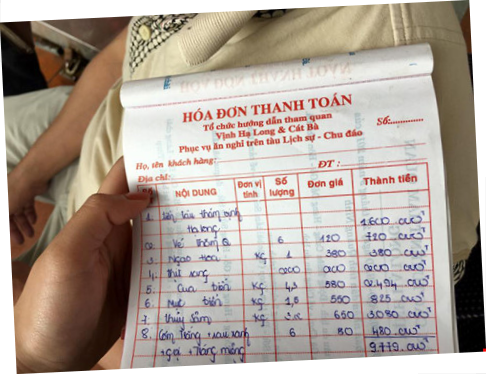 HÓA ĐƠN THANH TOÁN
Tổ chức hướng dẫn tham quan
Vịnh Hạ Long & Cát Bà
Phục vụ ăn nghỉ trên tàu Lịch sự - Chu đáo
Số:.............
Họ, tên khách hàng:
ĐT :
Địa chỉ:
NỘI DUNG Đơn vị tính Số lượng Đơn giá Thành tiền
1. tàu thăm vịnh
Hạ Long 1.600.000đ
2. Vé thăm 6 120 720.000đ
3. Ngao Hoa kg 1 380 380.000đ
4. 200 000đ
5. Cua biển kg 4,3 580 2.494.000đ
6. Mực biển kg 1,5 550 825.000đ
7. thủy sâm kg 650 3.080.000đ
8. Cơm trắng + rau xanh 6 80 480.000đ
+ gọi + tráng miệng 9.779.000đ